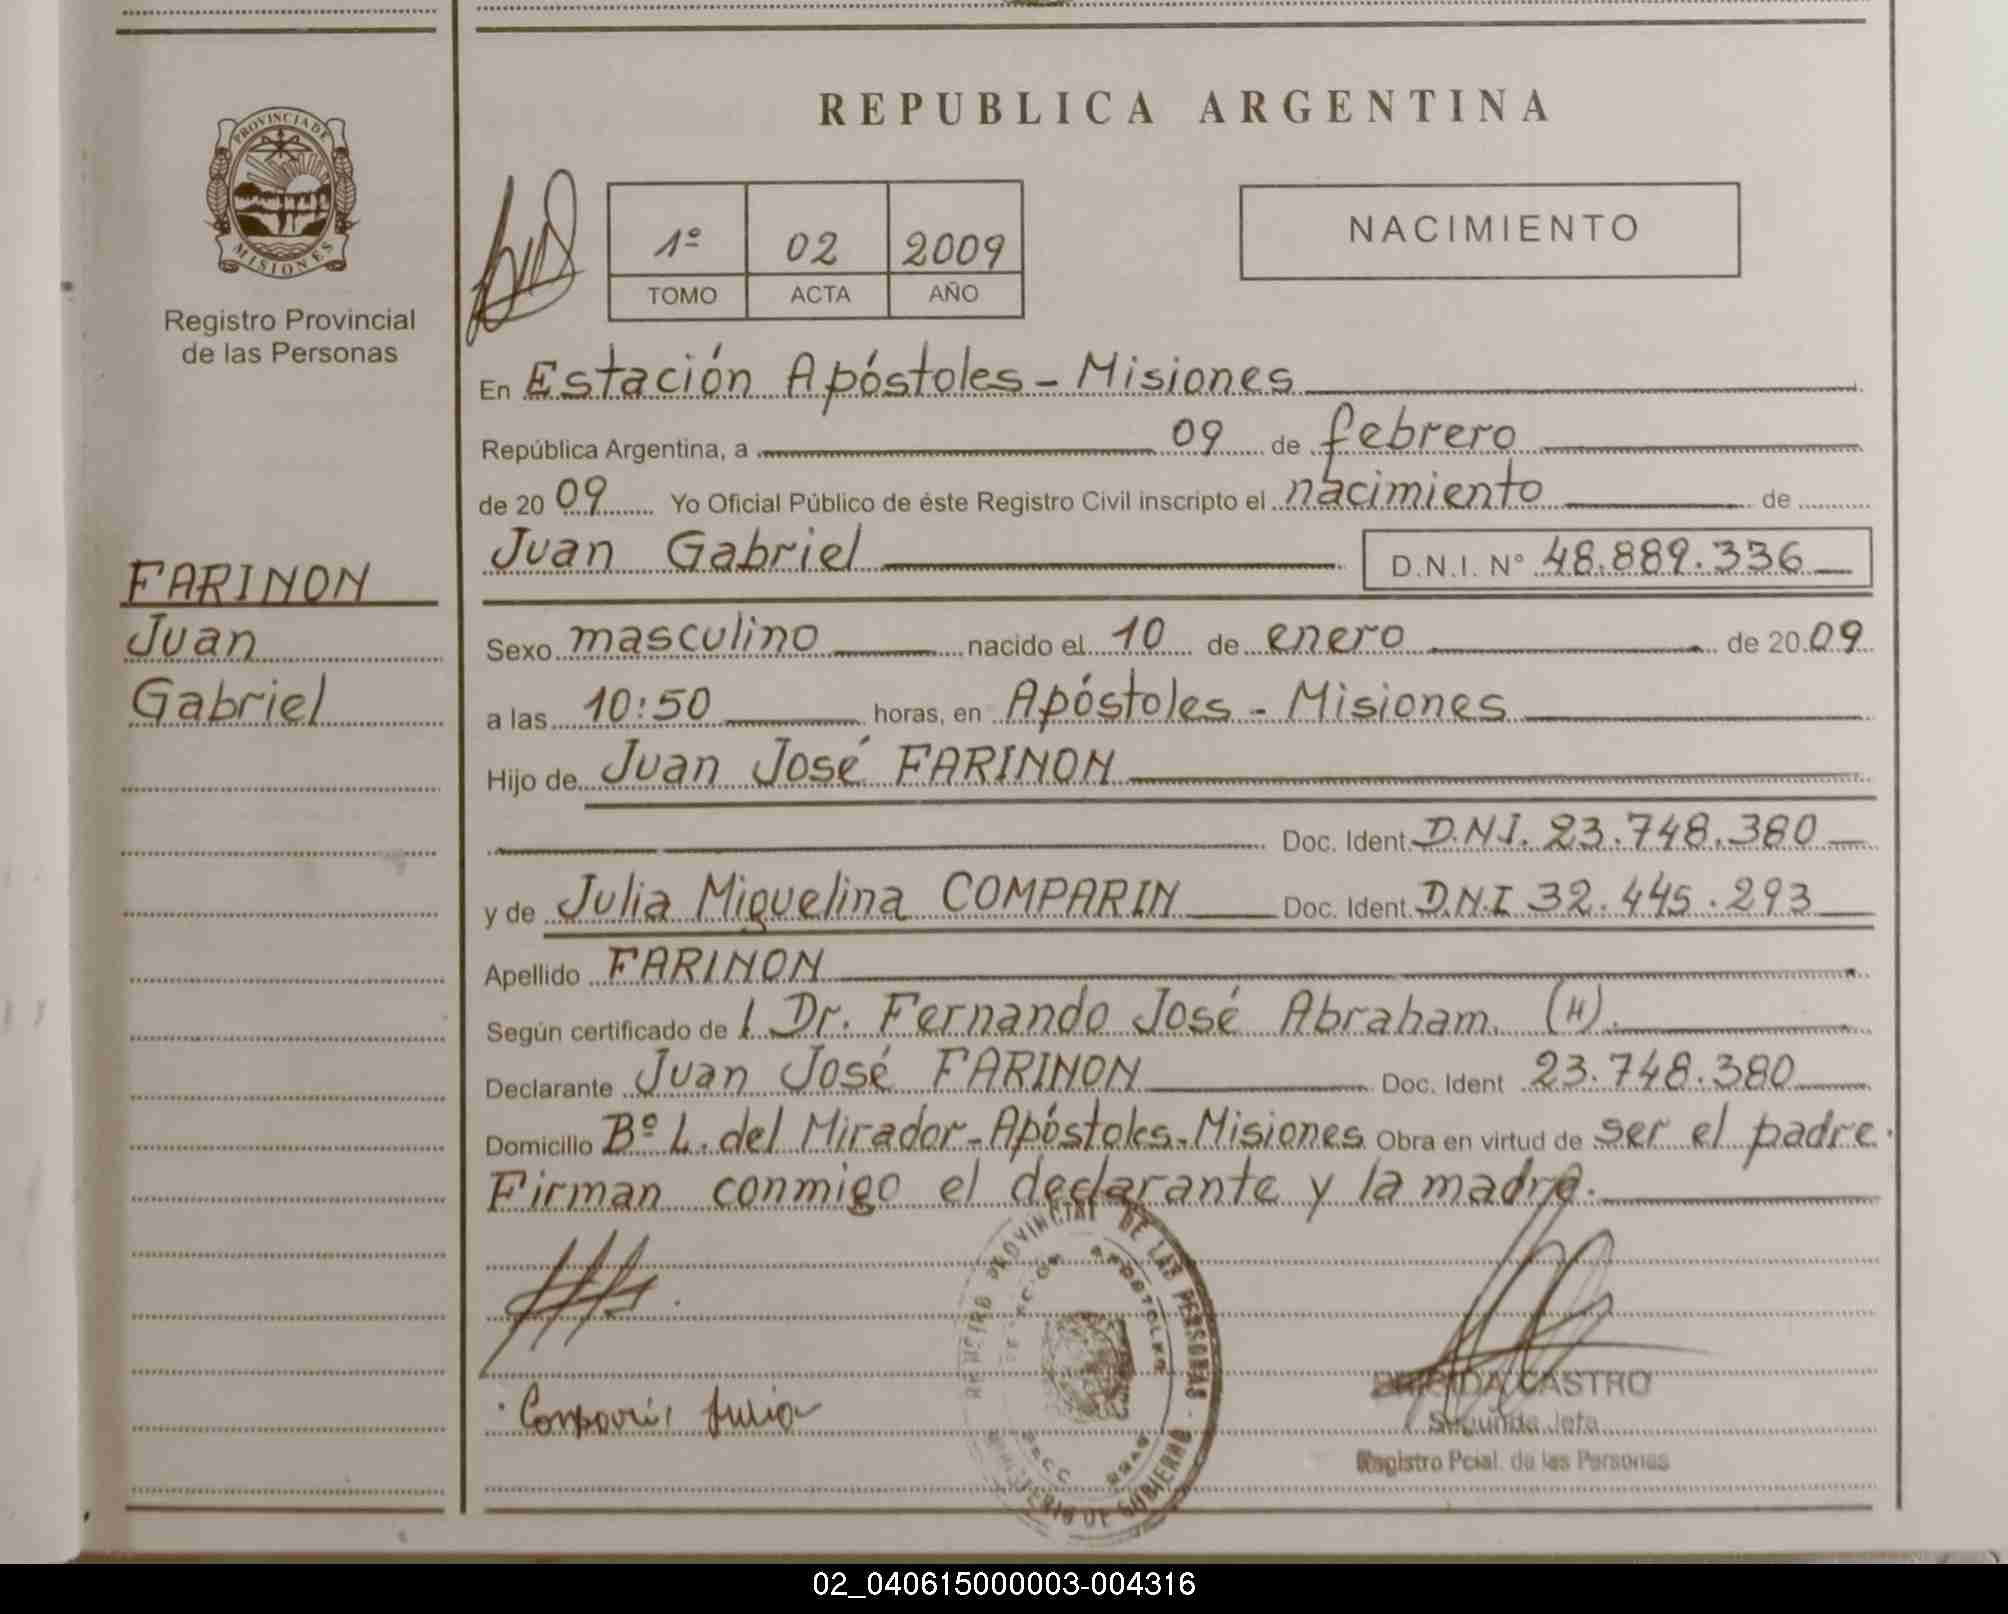 REPUBLICA ARGENTINA
PROVINCIA DE
MISIONES
Registro Provincial
de las Personas
1º 02 2009
TOMO ACTA AÑO
NACIMIENTO
En Estación Apóstoles - Misiones
República Argentina, a 09 de febrero
de 20 09 Yo Oficial Público de éste Registro Civil inscripto el nacimiento de
Juan Gabriel D.N.I. Nº 48.889.336
FARINON
Juan
Gabriel
Sexo masculino nacido el 10 de enero de 20 09
a las 10:50 horas, en Apóstoles - Misiones
Hijo de Juan José FARINON
Doc. Ident. D.N.I. 23.748.380
y de Julia Miguelina COMPARIN Doc. Ident. D.N.I 32.445.293
Apellido FARINON
Según certificado de l Dr. Fernando José Abraham (H).
Declarante Juan José FARINON Doc. Ident 23.748.380
Domicilio Bº L. del Mirador - Apóstoles - Misiones Obra en virtud de ser el padre.
Firman conmigo el declarante y la madre.
PROVINCIAL DE LAS PERSONAS
DE GOBIERNO
Comparin Julia
CASTRO
Segunda Jefa
Registro Pcial. de las Personas
02_040615000003-004316